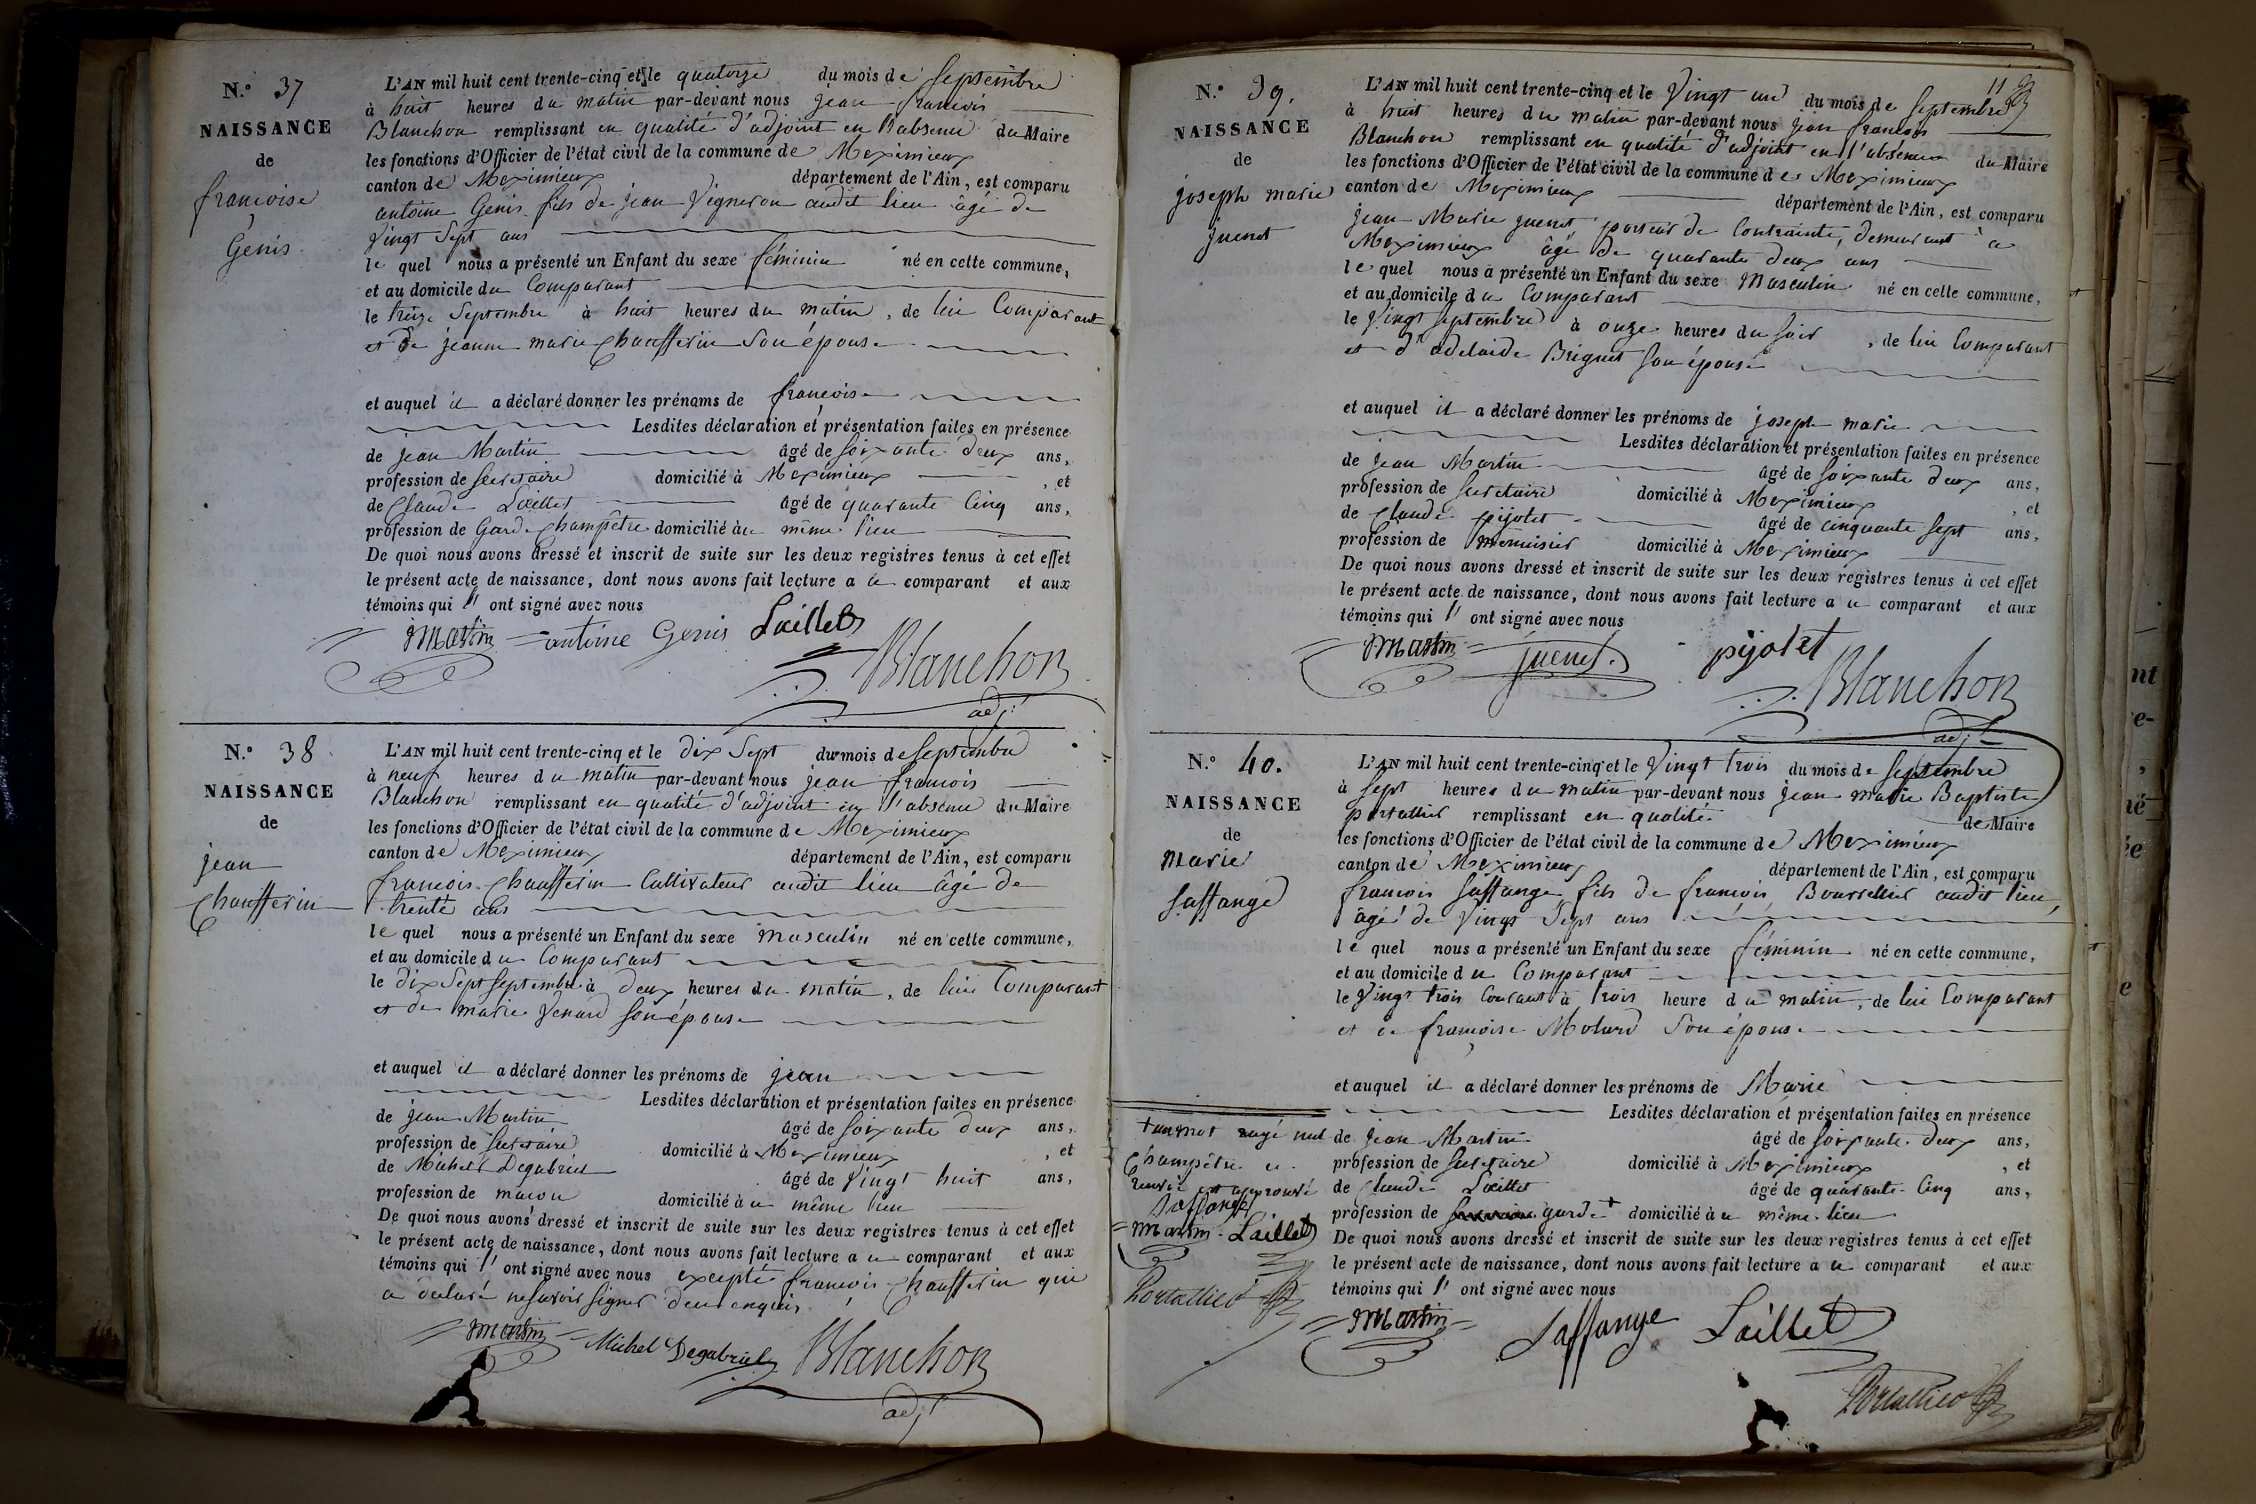 N.° 37
NAISSANCE
de
françoise
Genis
L'AN mil huit cent trente-cinq et le quatorze du mois de Septembre
à huit heures du matin par-devant nous jean françois
Blanchon remplissant en qualité d'adjoint en l'absence du Maire
les fonctions d'Officier de l'état civil de la commune de Meximieux
canton de Meximieux département de l'Ain, est comparu
antoine Genis fils de jean Vigneron audit lieu âgé de
Vingt Sept ans
le quel nous a présenté un Enfant du sexe féminin né en cette commune,
et au domicile du Comparant
le treize Septembre à huit heures du matin, de lui Comparant
et de jeanne marie Chaufferin Son épouse
et auquel il a déclaré donner les prénoms de françoise
Lesdites déclaration et présentation faites en présence
de jean Martin âgé de Soixante deux ans,
profession de Secretaire domicilié à Meximieux, et
de Claude Laillet âgé de quarante Cinq ans,
profession de Garde Champêtre domicilié au même lieu
De quoi nous avons dressé et inscrit de suite sur les deux registres tenus à cet effet
le présent acte de naissance, dont nous avons fait lecture a u comparant et aux
témoins qui l' ont signé avec nous
Martin antoine Genis Laillet
Blanchon
adj.t
N.° 38
NAISSANCE
de
jean
Chaufferin
L'AN mil huit cent trente-cinq et le dix Sept du mois de Septembre
à neuf heures du matin par-devant nous jean francois
Blanchon remplissant en qualité d'adjoint en l'absence du Maire
les fonctions d'Officier de l'état civil de la commune de Meximieux
canton de Meximieux département de l'Ain, est comparu
francois Chaufferin Cultivateur audit lieu âgé de
trente ans
le quel nous a présenté un Enfant du sexe masculin né en cette commune,
et au domicile du Comparant
le dix Sept Septembre à deux heures du matin, de lui Comparant
et de marie Venard Son épouse
et auquel il a déclaré donner les prénoms de jean
Lesdites déclaration et présentation faites en présence
de jean Martin âgé de Soixante deux ans,
profession de Secretaire domicilié à Meximieux, et
de Michel Degabriel âgé de Vingt huit ans,
profession de macon domicilié au même lieu
De quoi nous avons dressé et inscrit de suite sur les deux registres tenus à cet effet
le présent acte de naissance, dont nous avons fait lecture a u comparant et aux
témoins qui l' ont signé avec nous excepté francois Chaufferin qui
a déclaré ne Savoir Signer de ce enquis
Martin Michel Degabriel Blanchon
adj.t
N.° 39.
NAISSANCE
de
joseph marie
juenet
11
L'AN mil huit cent trente-cinq et le Vingt un du mois de Septembre
à huit heures du matin par-devant nous jean francois
Blanchon remplissant en qualité d'adjoint en l'absence du Maire
les fonctions d'Officier de l'état civil de la commune de Meximieux
canton de Meximieux département de l'Ain, est comparu
jean Marie juenet porteur de Contrainte, demeurant a
Meximieux âgé de quarante deux ans
le quel nous a présenté un Enfant du sexe Masculin né en cette commune,
et au domicile du Comparant
le Vingt Septembre à onze heures du Soir, de lui Comparant
et d'adelaide Brignet Son épouse
et auquel il a déclaré donner les prénoms de joseph marie
Lesdites déclaration et présentation faites en présence
de jean Martin âgé de Soixante deux ans,
profession de Secretaire domicilié à Meximieux, et
de Claude pijolet âgé de cinquante Sept ans,
profession de menuisier domicilié à Meximieux
De quoi nous avons dressé et inscrit de suite sur les deux registres tenus à cet effet
le présent acte de naissance, dont nous avons fait lecture a u comparant et aux
témoins qui l' ont signé avec nous
Martin juenet. pijolet
Blanchon
adj.t
N.° 40.
NAISSANCE
de
Marie
Saffange
L'AN mil huit cent trente-cinq et le Vingt trois du mois de Septembre
à Sept heures du matin par-devant nous jean marie Baptiste
portallier remplissant en qualité de Maire
les fonctions d'Officier de l'état civil de la commune de Meximieux
canton de Meximieux département de l'Ain, est comparu
francois Saffange fils de francois Bourrellier audit lieu,
âgé de Vingt Sept ans
le quel nous a présenté un Enfant du sexe féminin né en cette commune,
et au domicile du Comparant
le Vingt trois Courant à trois heure du matin, de lui Comparant
et de françoise Molard Son épouse
et auquel il a déclaré donner les prénoms de Marie
Lesdites déclaration et présentation faites en présence
de jean Martin âgé de Soixante deux ans,
profession de Secretaire domicilié à Meximieux, et
de Claude Laillet âgé de quarante Cinq ans,
profession de garde + domicilié au même lieu
De quoi nous avons dressé et inscrit de suite sur les deux registres tenus à cet effet
le présent acte de naissance, dont nous avons fait lecture a u comparant et aux
témoins qui l' ont signé avec nous
+ un mot rayé nul
Champêtre
renvoi est approuvé
Saffange
Martin Laillet
Portallier
Martin Saffange Laillet
Portallier